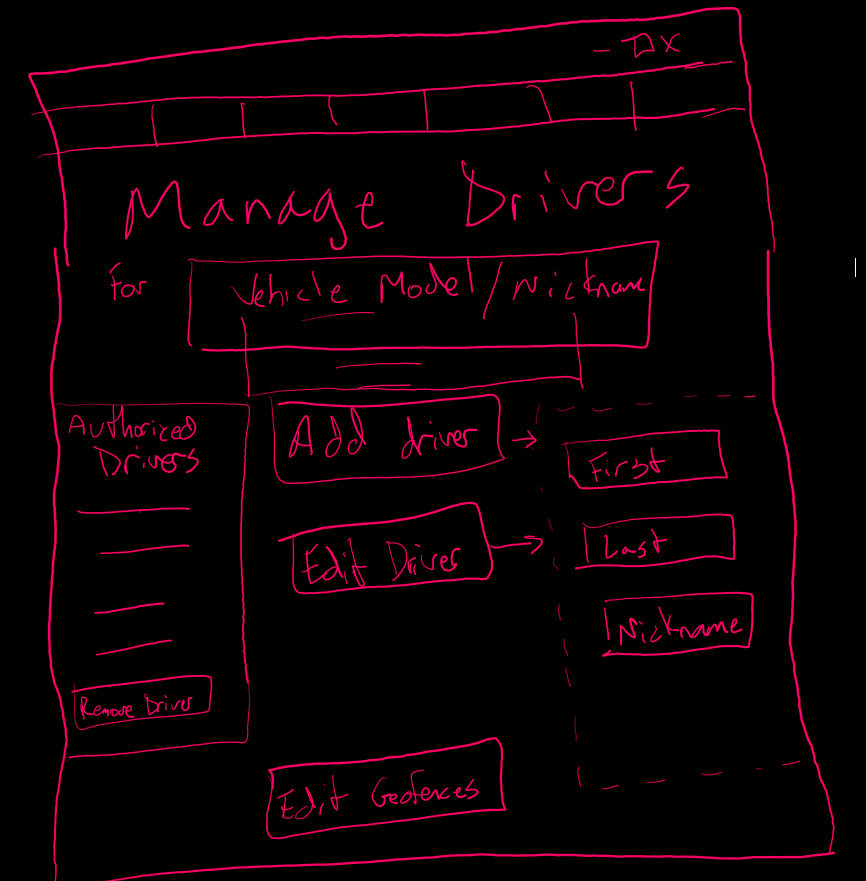 - □ X
Manage Drivers
For Vehicle Model/Nickname
Authorized
Drivers
Remove Driver
Add driver
Edit Driver
First
Last
Nickname
Edit Geofences